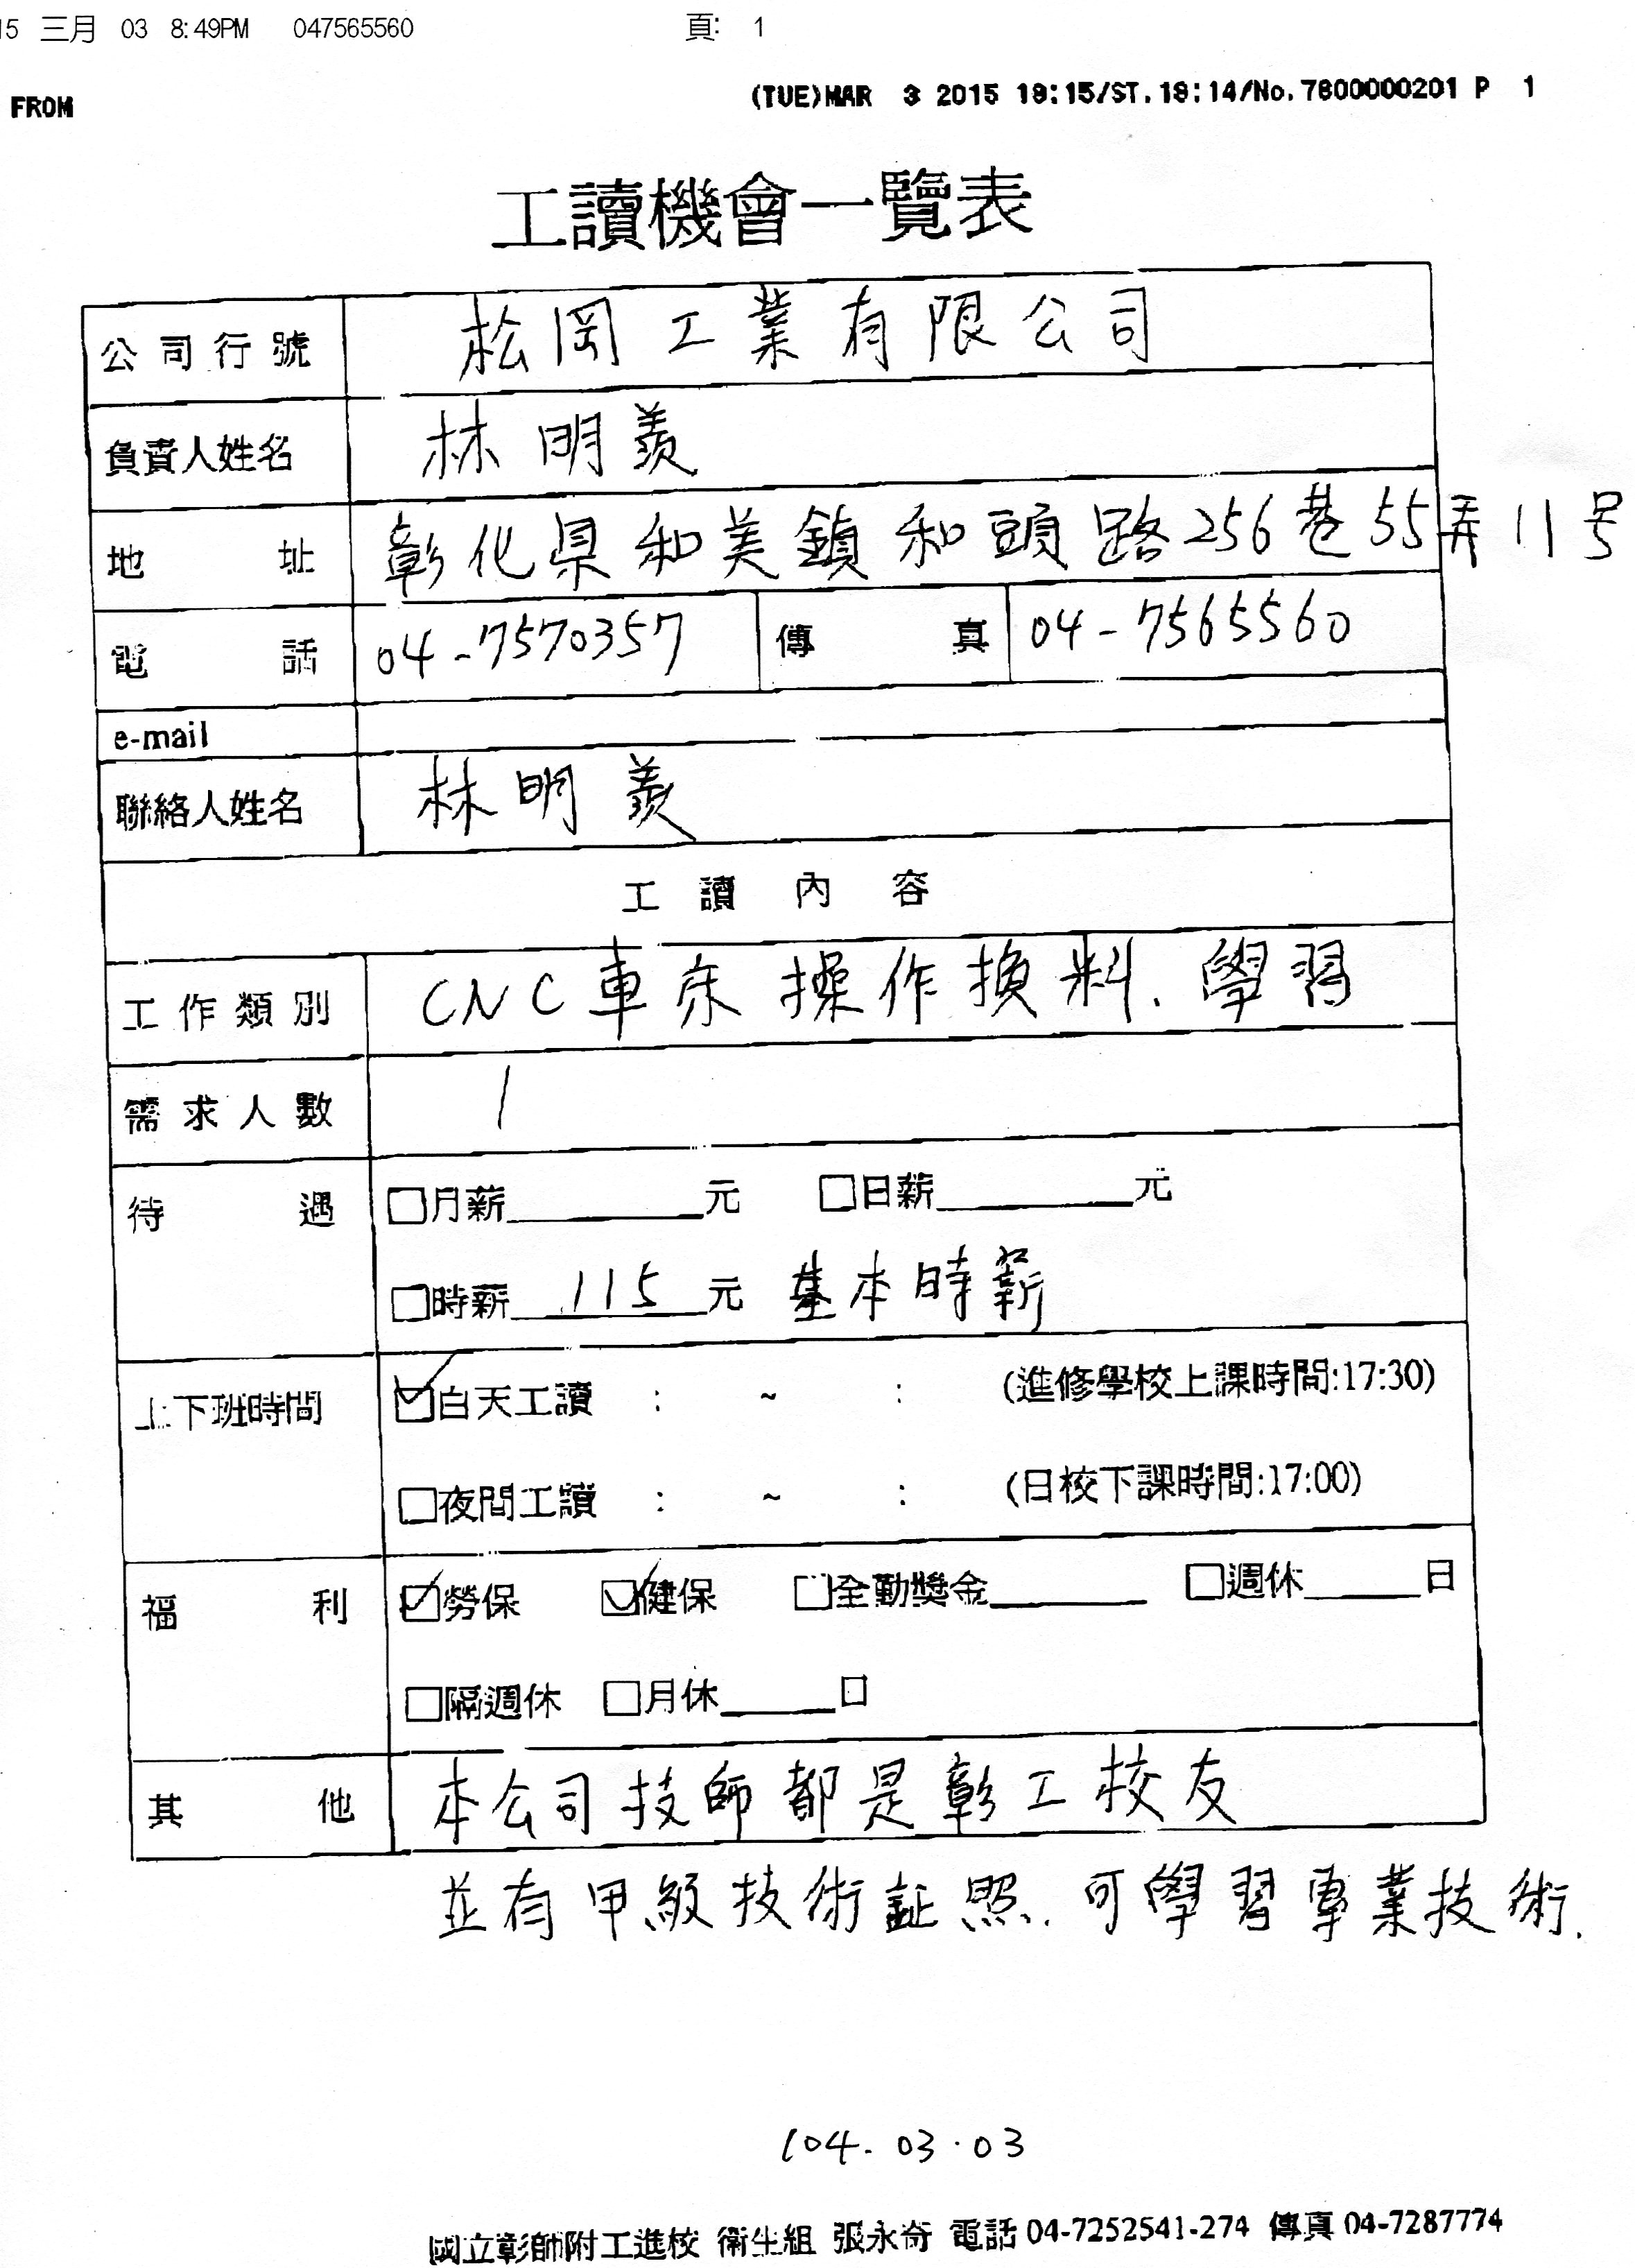 15 三月 03 8:49PM 047565560 頁: 1
FROM (TUE)MAR 3 2015 18:15/ST.18:14/No.7800000201 P 1
工讀機會一覽表
公司行號 松岡工業有限公司
負責人姓名 林明羨
地址 彰化県和美鎮和頭路256巷55弄11号
電話 04-7570357 傳真 04-7565560
e-mail
聯絡人姓名 林明羨
工讀內容
工作類別 CNC車床操作換料、學習
需求人數 1
待遇 □月薪______元 □日薪______元
□時薪 115 元 基本時薪
上下班時間 ☑白天工讀 : ~ : (進修學校上課時間:17:30)
□夜間工讀 : ~ : (日校下課時間:17:00)
福利 ☑勞保 ☑健保 □全勤獎金______ □週休____日
□隔週休 □月休____日
其他 本公司技師都是彰工校友
並有甲級技術証照. 可學習專業技術.
104.03.03
國立彰師附工進校 衛生組 張永奇 電話 04-7252541-274 傳真 04-7287774